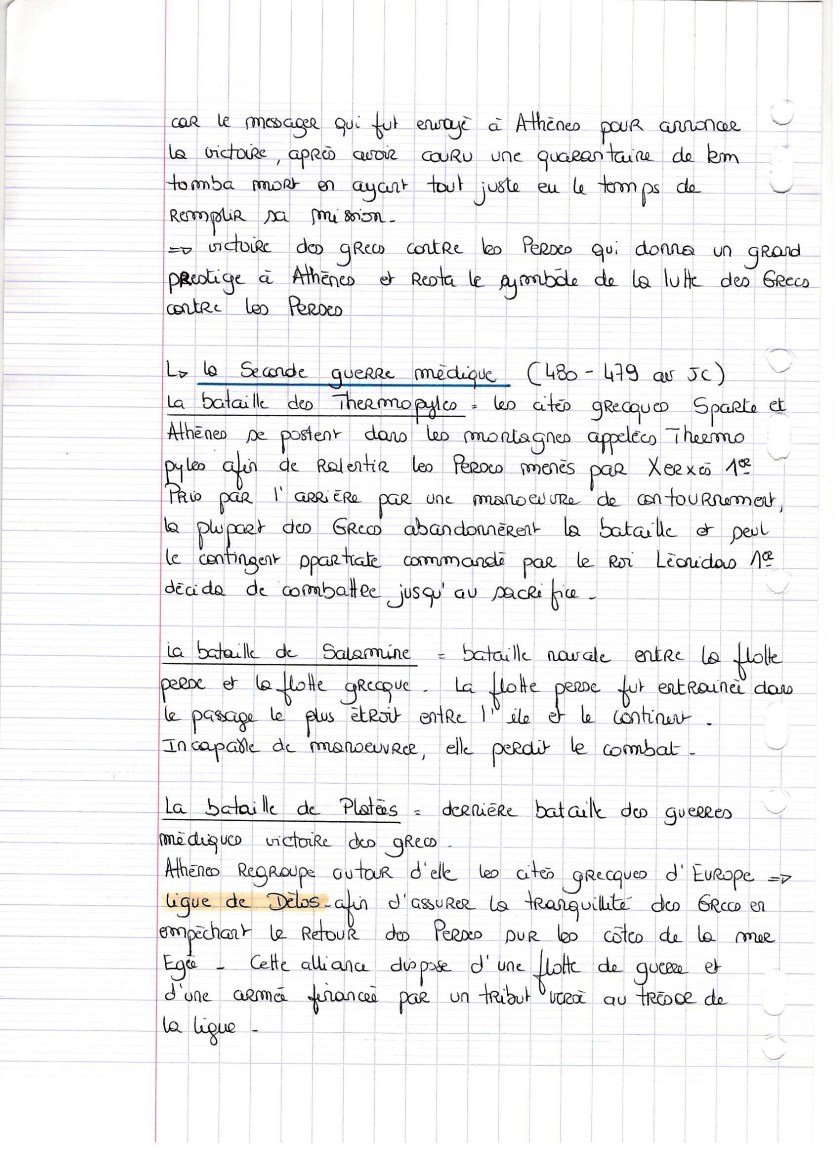 car le messager qui fut envoyé à Athènes pour annoncer
la victoire, après avoir couru une quarantaine de km
tomba mort en ayant tout juste eu le temps de
remplir sa mission.
=> victoire des grecs contre les Perses qui donna un grand
prestige à Athènes et resta le symbole de la lutte des Grecs
contre les Perses
L> la Seconde guerre médique (480 - 479 av JC)
La bataille des Thermopyles = les cités grecques Sparte et
Athènes se postent dans les montagnes appelées Thermo
pyles afin de ralentir les Perses menés par Xerxès 1er
Pris par l'arrière par une manoeuvre de contournement,
la plupart des Grecs abandonnèrent la bataille et seul
le contingent spartiate commandé par le Roi Léonidas 1er
décida de combattre jusqu'au sacrifice.
La bataille de Salamine = bataille navale entre la flotte
perse et la flotte grecque. La flotte perse fut entrainée dans
le passage le plus étroit entre l'île et le continent.
Incapable de manoeuvrer, elle perdit le combat.
La bataille de Platées = dernière bataille des guerres
médiques victoire des grecs.
Athènes Regroupe autour d'elle les cités grecques d'Europe =>
ligue de Délos afin d'assurer la tranquillité des Grecs en
empêchant le retour des Perses sur les côtes de la mer
Egée - Cette alliance dispose d'une flotte de guerre et
d'une armée financée par un tribut versé au trésor de
la ligue -